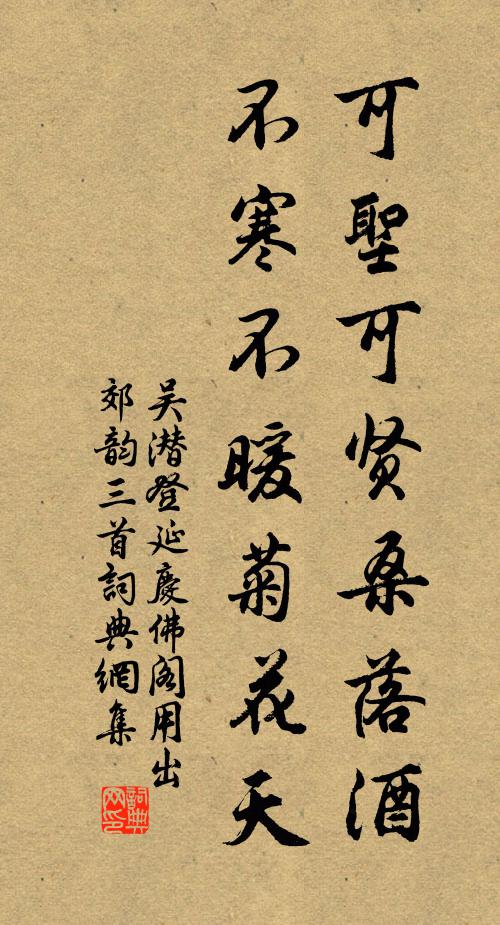 可聖可贤桑落酒
不寒不暖菊花天
吴潜登延慶佛阁用出
郊韵三首詞典網集
詞典网印